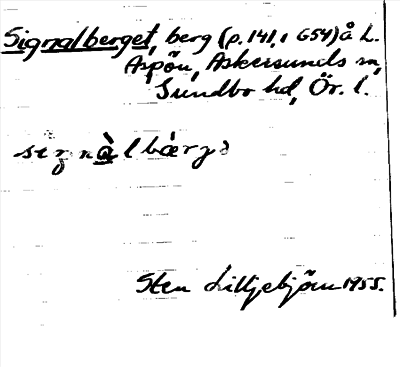 Signalberget, berg (p. 141, i G54) å L.
Aspön, Askersunds sn,
Sundbo hd, Ör. l.
siŋnàlbærjə
Sten Liljebjörn 1955.